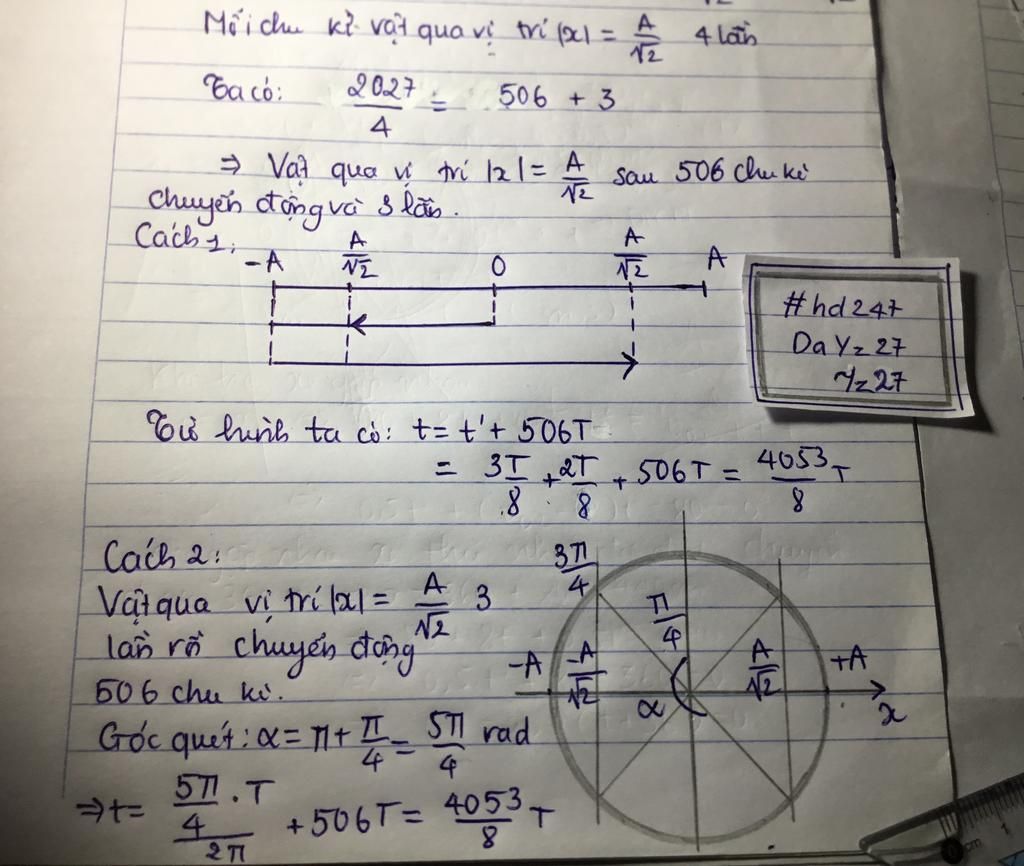 Mỗi chu kì vật qua vị trí |x| = A/√2 4 lần
Ta có: 2027/4 = 506 + 3
⇒ Vật qua vị trí |x| = A/√2 sau 506 chu kì
chuyển động và 3 lần.
Cách 1:
-A A/√2 O A/√2 A
#hd247
DaY=27
Y=27
Từ hình ta có: t = t' + 506T
= 3T/8 + 2T/8 + 506T = 4053/8 T
Cách 2:
Vật qua vị trí |x| = A/√2 3
lần rồi chuyển động
506 chu kì.
Góc quét: α = π + π/4 = 5π/4 rad
⇒ t = (5π/4 . T)/2π + 506T = 4053/8 T
3π/4
π/4
-A -A/√2 A/√2 +A
α x
cm 1